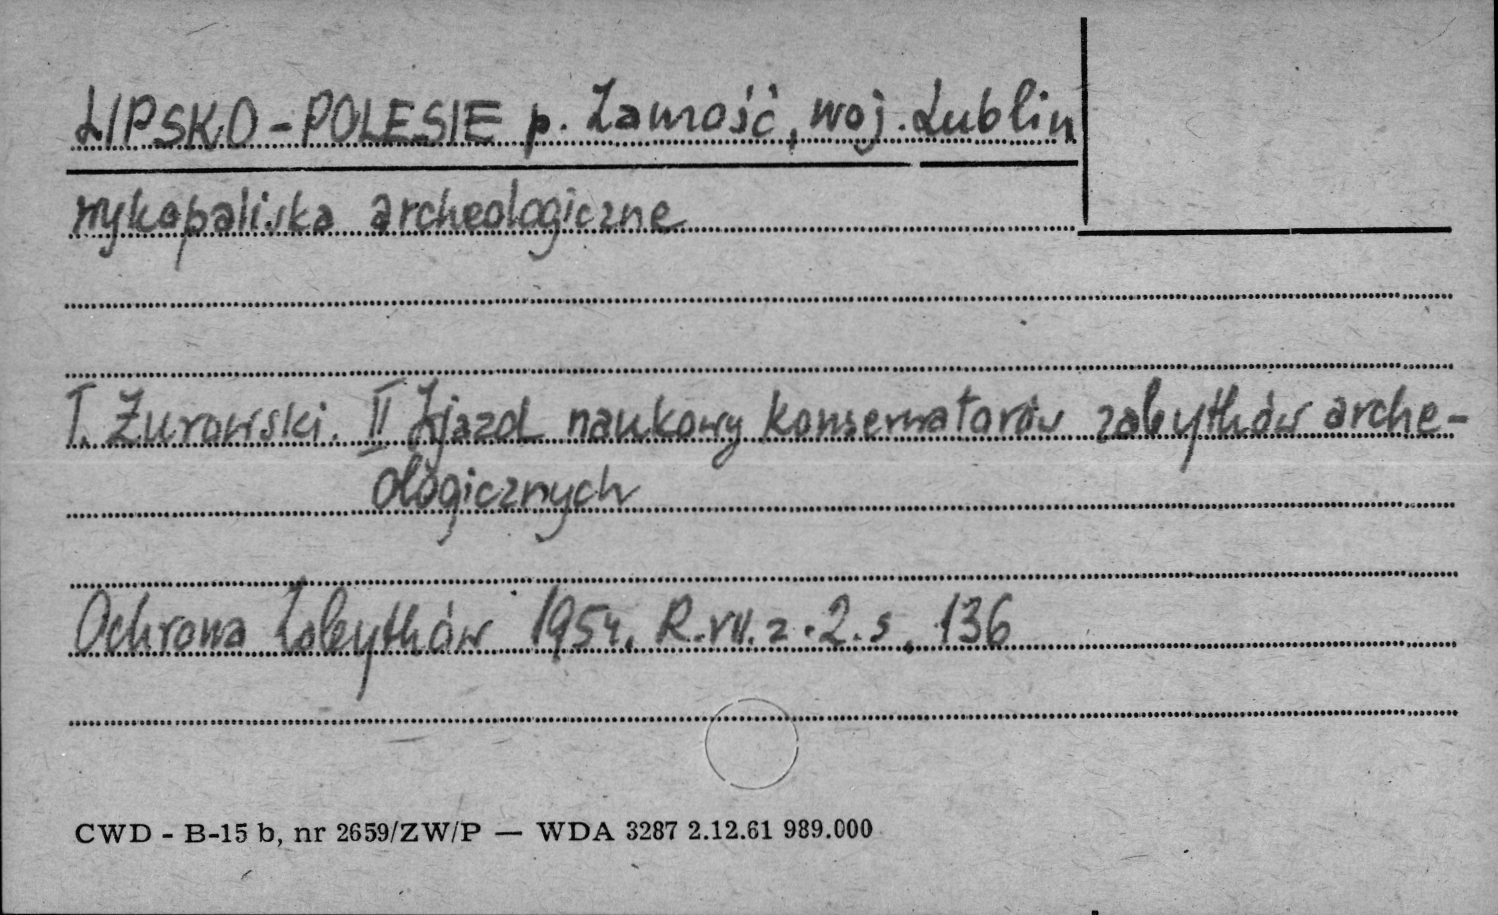 LIPSKO-POLESIE p. Zamość, woj. Lublin
wykopaliska archeologiczne
T. Żurowski. II Zjazd naukowy konserwatorów zabytków arche-
ologicznych
Ochrona Zabytków 1954. R.VII. z. 2. s. 136
CWD - B-15 b, nr 2659/ZW/P — WDA 3287 2.12.61 989.000